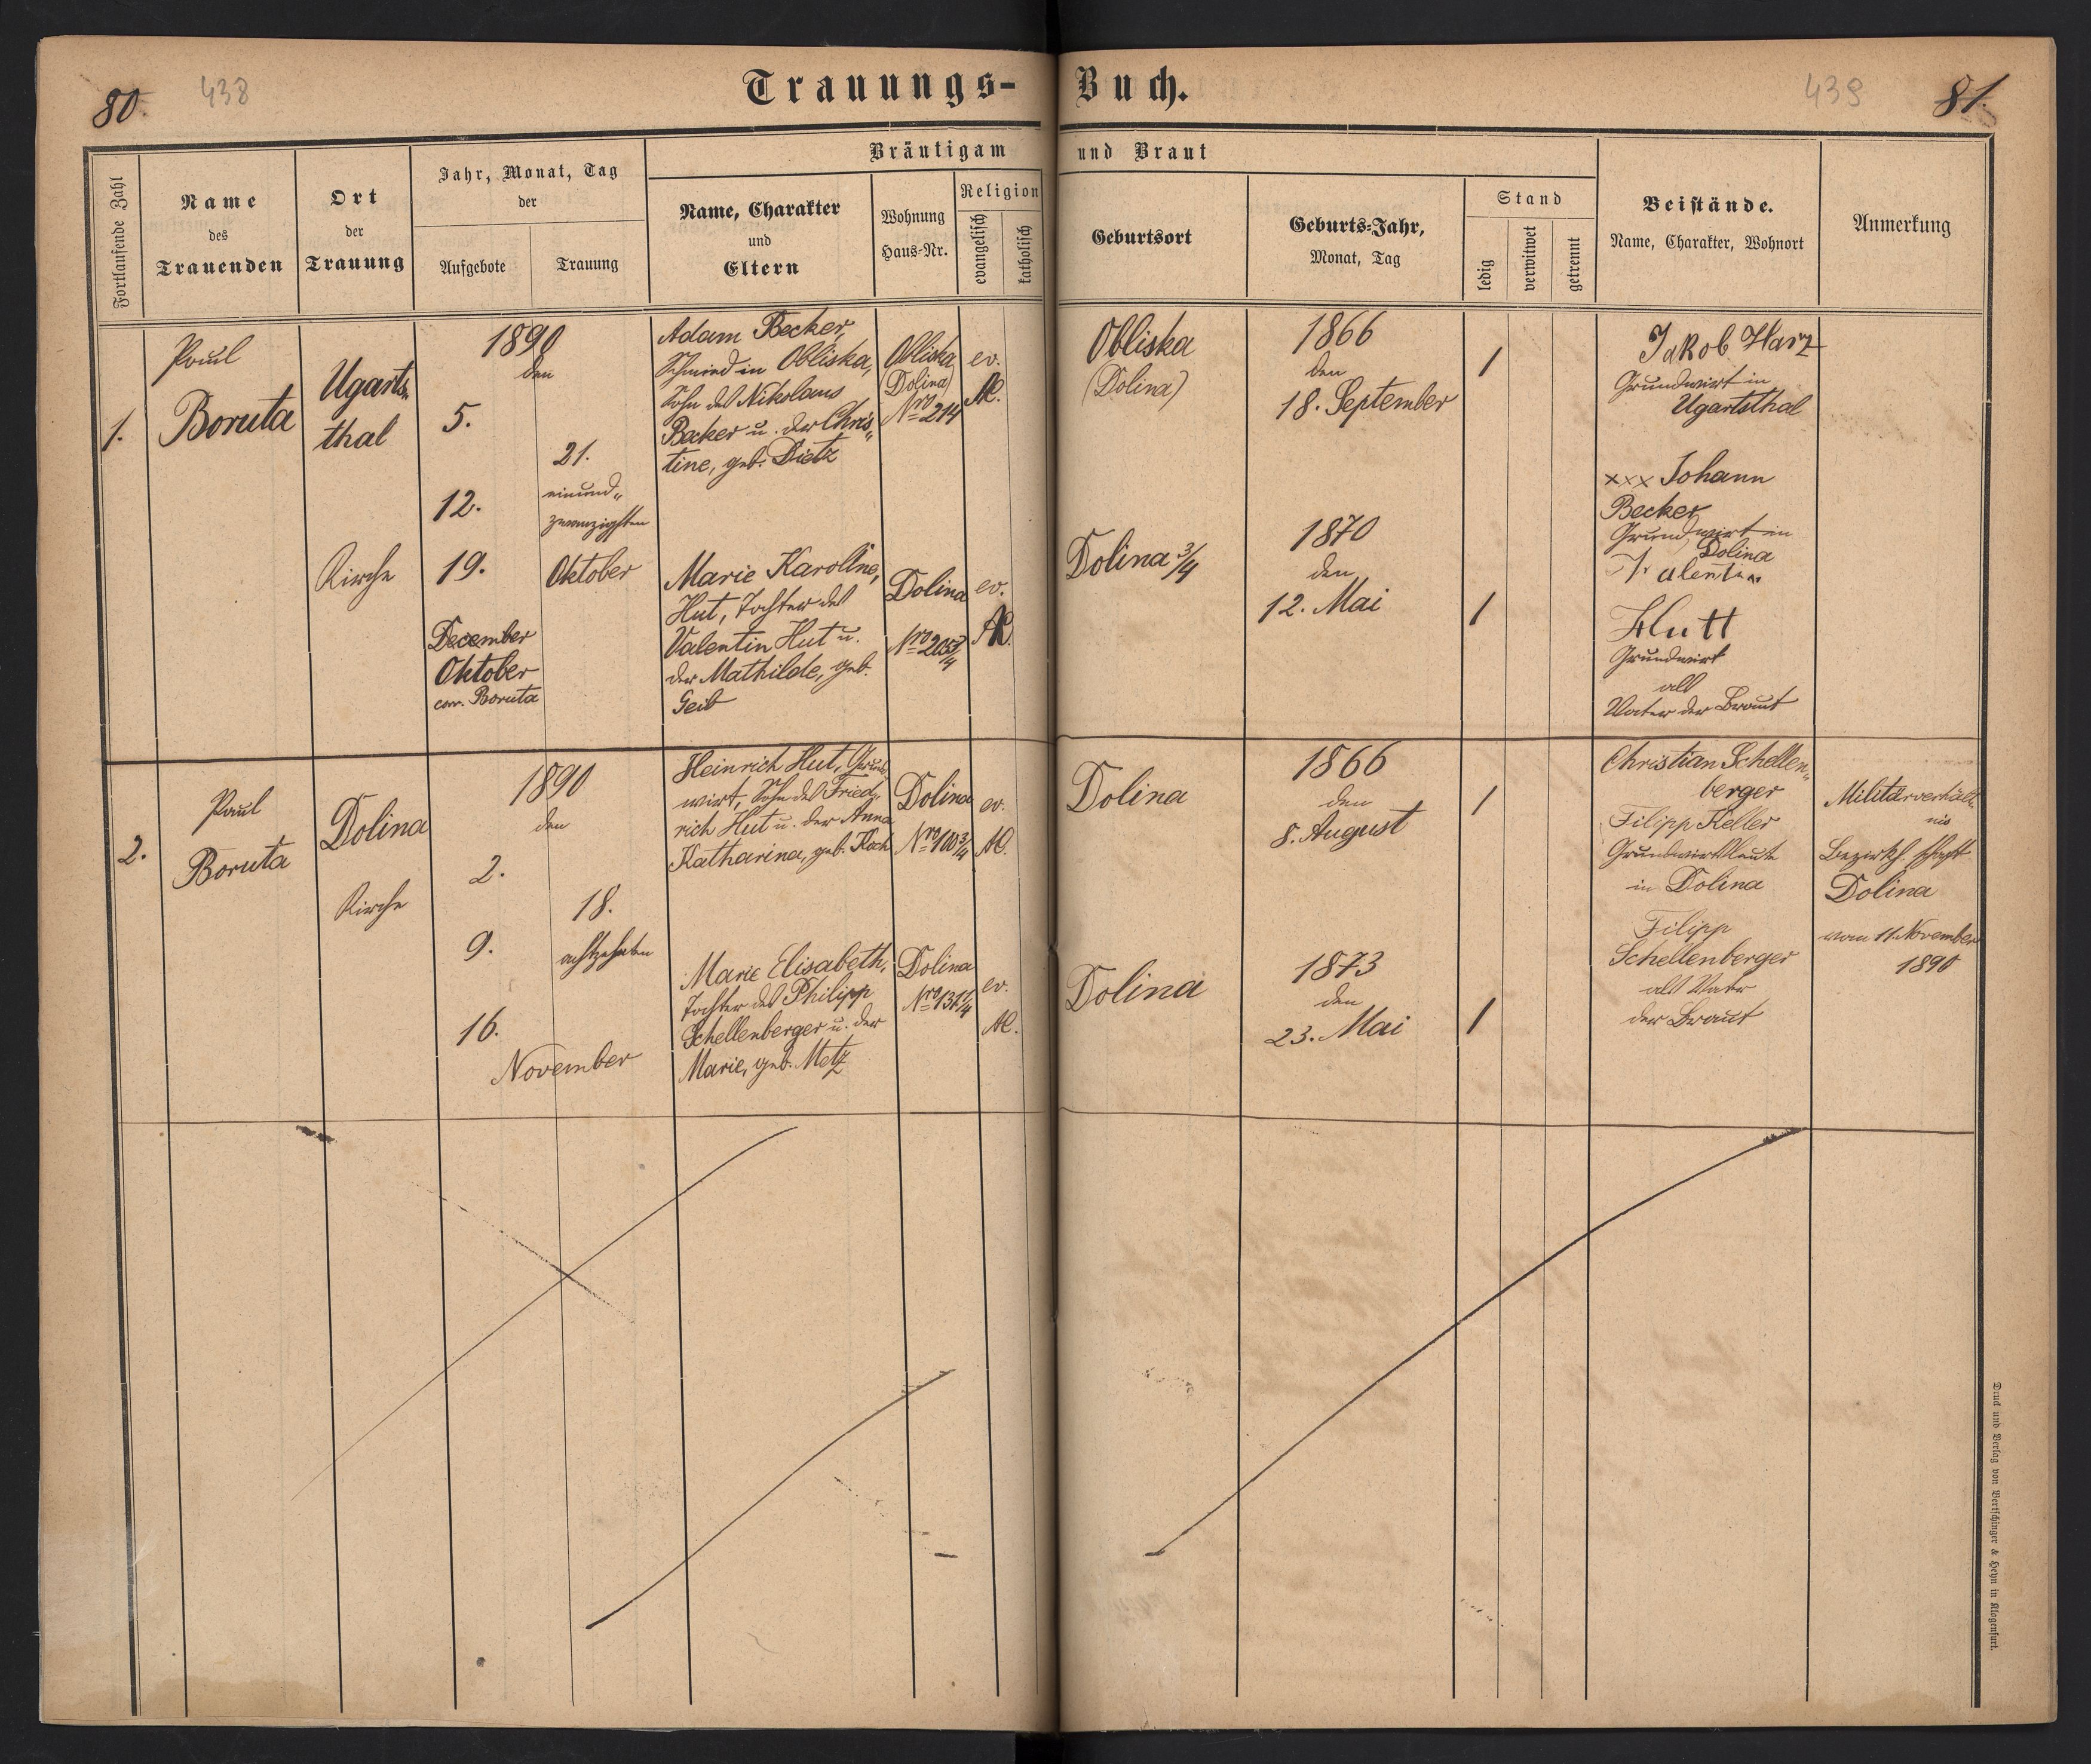 80.
438
Trauungs-Buch.
439
81.
Fortlaufende Zahl
Name
des
Trauenden
Ort
der
Trauung
Jahr, Monat, Tag
der
Aufgebote
Trauung
Bräutigam und Braut
Name, Charakter
und
Eltern
Wohnung
Haus-Nr.
Religion
evangelisch
katholisch
Geburtsort
Geburts-Jahr,
Monat, Tag
Stand
ledig
verwitwet
getrennt
Beistände.
Name, Charakter, Wohnort
Anmerkung
1.
Paul
Boruta
Ugarts„
thal
Kirche
1890
den
5.
12.
19.
December
Oktober
corr. Boruta
21.
einund„
zwanzigsten
Oktober
Adam Becker,
Schmied in Obliska,
Sohn des Nikolaus
Becker u. der Chris„
tine, geb. Dietz
Obliska
(Dolina)
Nro 214
ev.
AC.
Obliska
(Dolina)
1866
den
18. September
/
Marie Karoline,
Hut, Tochter des
Valentin Hut u.
der Mathilde, geb.
Geib
Dolina
ev.
AC.
Dolina 3/4
1870
den
12. Mai
/
Jakob Harz
Grundwirt in
Ugartsthal
xxx Johann
Becker
Grundwirt in
Dolina
Valentin
Hutt
Grundwirt
als
Vater der Braut
2.
Paul
Boruta
Dolina
Kirche
1890
den
2.
9.
16.
November
18.
achtzehnten
Heinrich Hut, Grund„
wirt, Sohn des Fried„
rich Hut u. der Anna
Katharina, geb. Koch
Dolina
Nro 100 3/4
ev.
AC.
Dolina
1866
den
8. August
/
Marie Elisabeth,
Tochter des Philipp
Schellenberger u. der
Marie, geb. Metz
Dolina
ev.
AC.
Dolina
1873
den
23. Mai
/
Christian Schellen„
berger
Filipp Keller
Grundwirtsleute
in Dolina
Filipp
Schellenberger
als Vater
der Braut
Militärverhält
nis
Bezirksh. schaft
Dolina
vom 11. November
1890
Druck und Verlag von Bertschinger & Heyn in Klagenfurt.